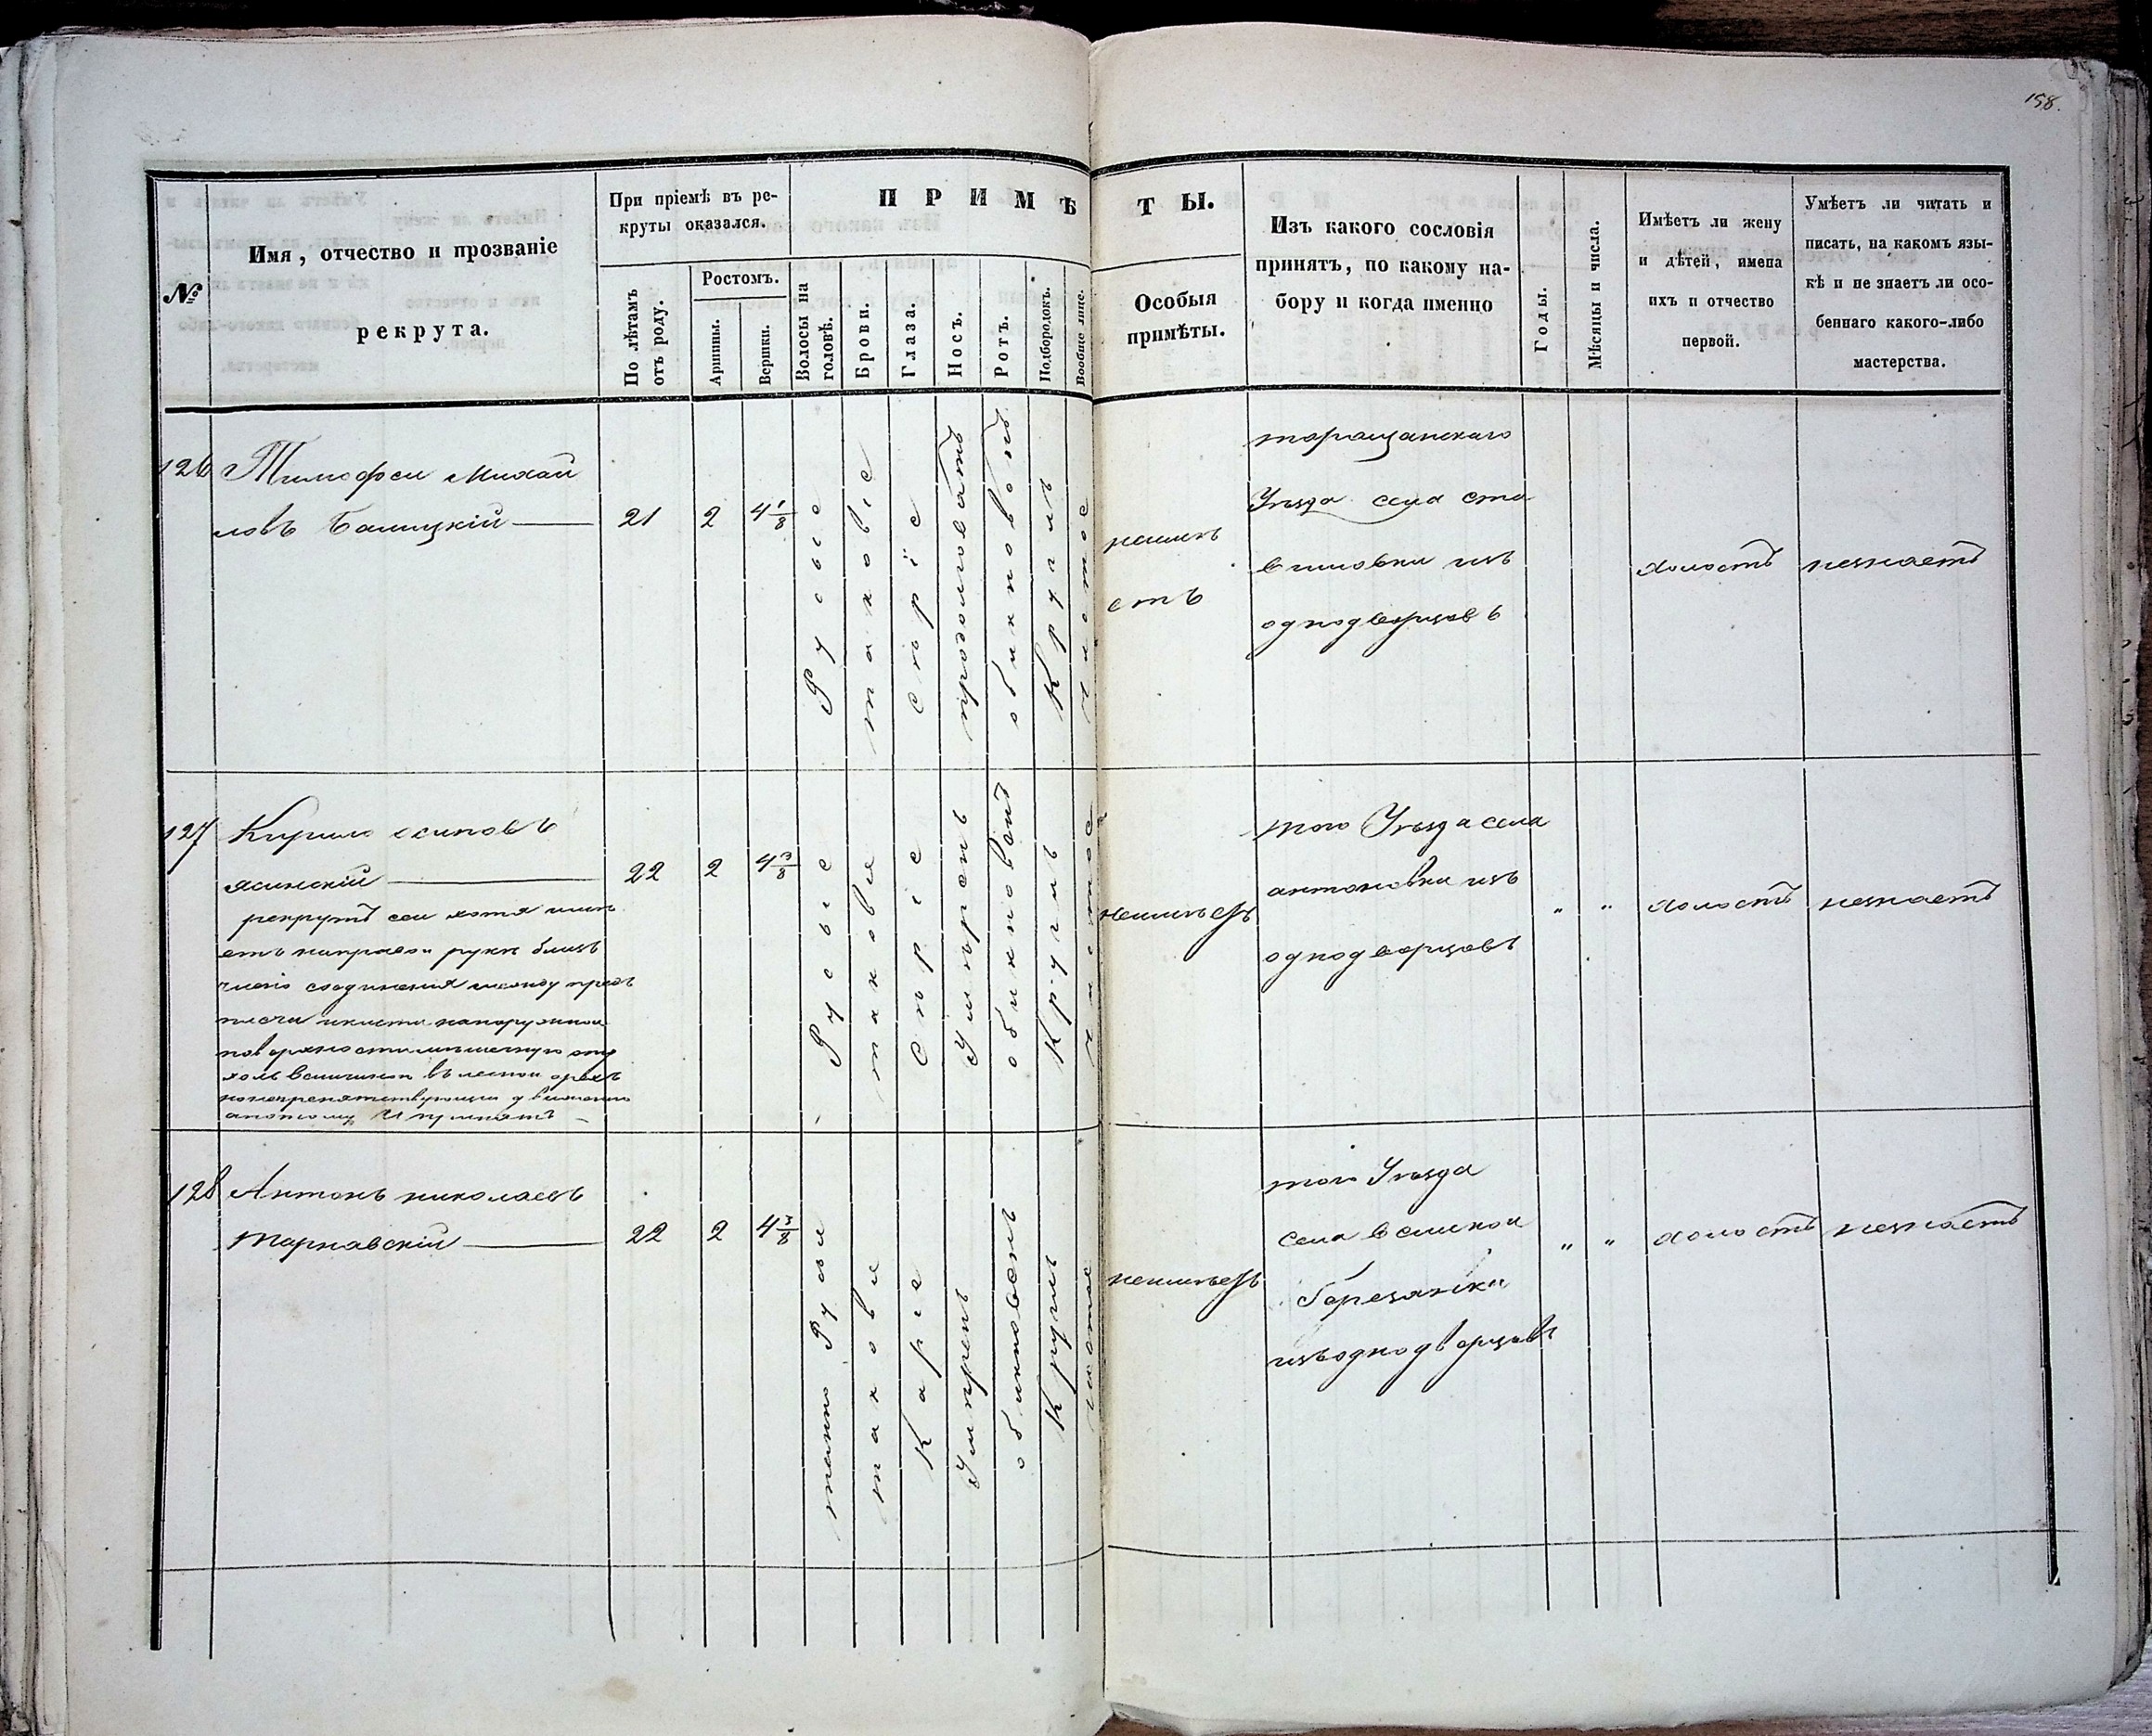 158.
№
Имя, отчество и прозваніе
рекрута.
При пріемѣ въ ре-
круты оказался.
По лѣтамъ
отъ роду.
Ростомъ.
Аршины.
Вершки.
ПРИМѢТЫ.
Волосы на
головѣ.
Брови.
Глаза.
Носъ.
Ротъ.
Подбородокъ.
Вообще лице.
Особыя
примѣты.
Изъ какого сословія
принятъ, по какому на-
бору и когда именно
Годы.
Мѣсяцы и числа.
Имѣетъ ли жену
и дѣтей, имена
ихъ и отчество
первой.
Умѣетъ ли читать и
писать, на какомъ язы-
кѣ и не знаетъ ли осо-
беннаго какого-либо
мастерства.
126
Тимофеи Михаи
ловъ Балицкій
21
2
4 1/8
Русые
таковіе
сѣрїе
продолговатъ
обикнового
Круглъ
чистое
неимѣ
етъ
таращанскаго
Уѣзда села ста
вишовки изъ
однодворцовъ
холостъ
незнаетъ
127
Кирило осиповъ
ясинскій
рекрутъ сеи хотя имѣ
етъ направои руки близъ
соединенія между
наружнои
величинои въ леснои орехъ
22
2
4 3/8
Русьіе
таковіе
Сѣріе
Умѣренъ
обикновенъ
Круглъ
чистое
неимѣетъ
того Уѣзда села
антоновки изъ
однодворцовъ
" "
холостъ
незнаетъ
128
Антонъ николаевъ
тарнавскій
22
2
4 3/8
темно Русыи
таковіе
Каріе
Умѣренъ
обикновенъ
Круглъ
чистое
неимѣетъ
того Уѣзда
села великои
березянки
изъ однодворцовъ
" "
холостъ
незнаетъ